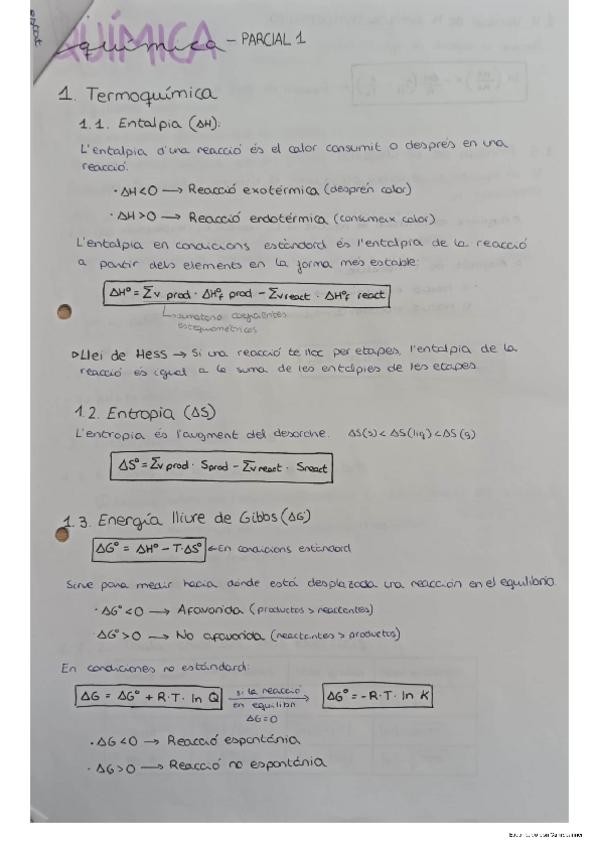 QUÍMICA
química - PARCIAL 1
1. Termoquímica
1.1. Entalpia (ΔH):
L'entalpia d'una reacció és el calor consumit o després en una
reacció.
· ΔH<0 → Reacció exotèrmica (desprén calor)
· ΔH>0 → Reacció endotérmica (consumeix calor)
L'entalpia en condicions estàndard és l'entalpia de la reacció
a partir dels elements en la forma més estable:
ΔH° = Σν prod · ΔH°f prod - Σν react · ΔH°f react
sumatorio coeficientes
estequiométricos
▷Llei de Hess → Si una reacció te lloc per etapes, l'entalpia de la
reacció és igual a la suma de les entalpies de les etapes
1.2. Entropia (ΔS)
L'entropia és l'augment del desordre. ΔS(s) < ΔS(liq) < ΔS(g)
ΔS° = Σν prod · Sprod - Σν react · Sreact
1.3. Energía lliure de Gibbs (ΔG)
ΔG° = ΔH° - T·ΔS° ← En condicions estàndard
Sirve para medir hacia dónde está desplazada una reacción en el equilibrio.
· ΔG°<0 → Afavorida (productos > reactantes)
· ΔG°>0 → No afavorida (reactantes > productos)
En condiciones no estándard:
ΔG = ΔG° + R·T·ln Q si la reacció en equilibri ΔG=0 → ΔG° = -R·T·ln K
· ΔG<0 → Reacció espontània
· ΔG>0 → Reacció no espontània